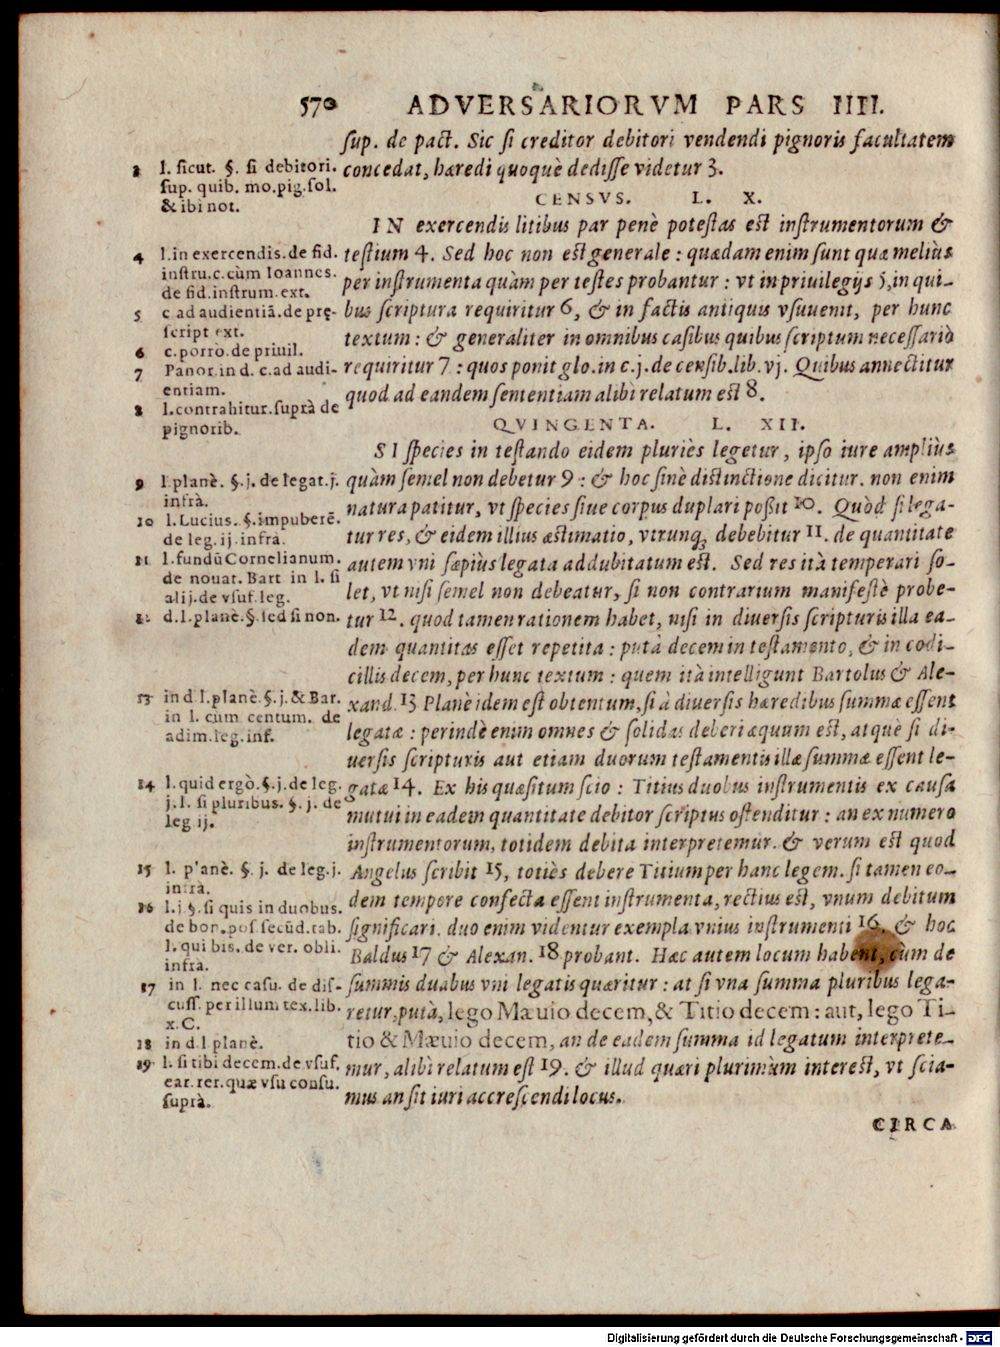 570 ADVERSARIORVM PARS IIII.
sup. de pact. Sic si creditor debitori vendendi pignoris facultatem
concedat, hæredi quoquè dedisse videtur 3.
CENSVS. L. X.
IN exercendis litibus par penè potestas est instrumentorum &
testium 4. Sed hoc non est generale : quædam enim sunt quæ meliùs
per instrumenta quàm per testes probantur : vt in priuilegijs 5, in qui-
bus scriptura requiritur 6, & in factis antiquis vsuuenit, per hunc
textum : & generaliter in omnibus casibus quibus scriptum necessariò
requiritur 7 : quos ponit glo. in c. j. de censib. lib. vj. Quibus annectitur
quod ad eandem sententiam alibì relatum est 8.
QVINGENTA. L. XII.
SI species in testando eidem pluriès legetur, ipso iure ampliùs
quàm semel non debetur 9 : & hoc sinè distinctione dicitur. non enim
natura patitur, vt species siue corpus duplari poßit 10. Quòd si lega-
tur res, & eidem illius æstimatio, vtrunq; debebitur 11. de quantitate
autem vni sæpiùs legata addubitatum est. Sed res ità temperari so-
let, vt nisi semel non debeatur, si non contrarium manifestè probe-
tur 12. quod tamen rationem habet, nisi in diuersis scripturis illa ea-
dem quantitas esset repetita : putà decem in testamento, & in codi-
cillis decem, per hunc textum : quem ità intelligunt Bartolus & Ale-
xand. 13 Planè idem est obtentum, si à diuersis hæredibus summæ essent
legatæ : perindè enim omnes & solidas deberi æquum est, atquè si di-
uersis scripturis aut etiam duorum testamentis illæ summæ essent le-
gatæ 14. Ex his quæsitum scio : Titius duobus instrumentis ex causa
mutui in eadem quantitate debitor scriptus ostenditur : an ex numero
instrumentorum, totidem debita interpretemur. & verum est quod
Angelus scribit 15, totiès debere Titium per hanc legem. si tamen eo-
dem tempore confecta essent instrumenta, rectius est, vnum debitum
significari. duo enim videntur exempla vnius instrumenti 16. & hoc
Baldus 17 & Alexan. 18 probant. Hæc autem locum habent, cùm de
summis duabus vni legatis quæritur : at si vna summa pluribus lega-
retur, putà, lego Mæuio decem, & Titio decem : aut, lego Ti-
tio & Mæuio decem, an de eadem summa id legatum interprete-
mur, alibì relatum est 19. & illud quæri plurimùm interest, vt scia-
mus an sit iuri accrescendi locus.
CIRCA
3 l. sicut. §. si debitori.
sup. quib. mo. pig. sol.
& ibi not.
4 l. in exercendis. de fid.
instru. c. cùm Ioannes.
de fid. instrum. ext.
5 c. ad audientiã. de prę-
script ext.
6 c. porrò. de priuil.
7 Panor. in d. c. ad audi-
entiam.
8 l. contrahitur. suprà de
pignorib.
9 l. planè. §. j. de legat. j.
infrà.
10 l. Lucius. §. impuberē.
de leg. ij. infrà.
11 l. fundũ Cornelianum.
de nouat. Bart in l. si
alij. de vsuf. leg.
12 d. l. planè. §. sed si non.
13 in d l. planè. §. j. & Bar.
in l. cùm centum. de
adim. leg. inf.
14 l. quid ergò. §. j. de leg.
j. l. si pluribus. §. j. de
leg ij.
15 l. planè. §. j. de leg. j.
infrà.
16 l. j. §. si quis in duobus.
de bon. pos secũd. tab.
l. qui bis. de ver. obli.
infrà.
17 in l. nec casu. de dis-
cuss. per illum tex. lib.
x. C.
18 in d. l planè.
19 l. si tibi decem. de vsuf.
ear. rer. quæ vsu consu.
suprà.
Digitalisierung gefördert durch die Deutsche Forschungsgemeinschaft - DFG